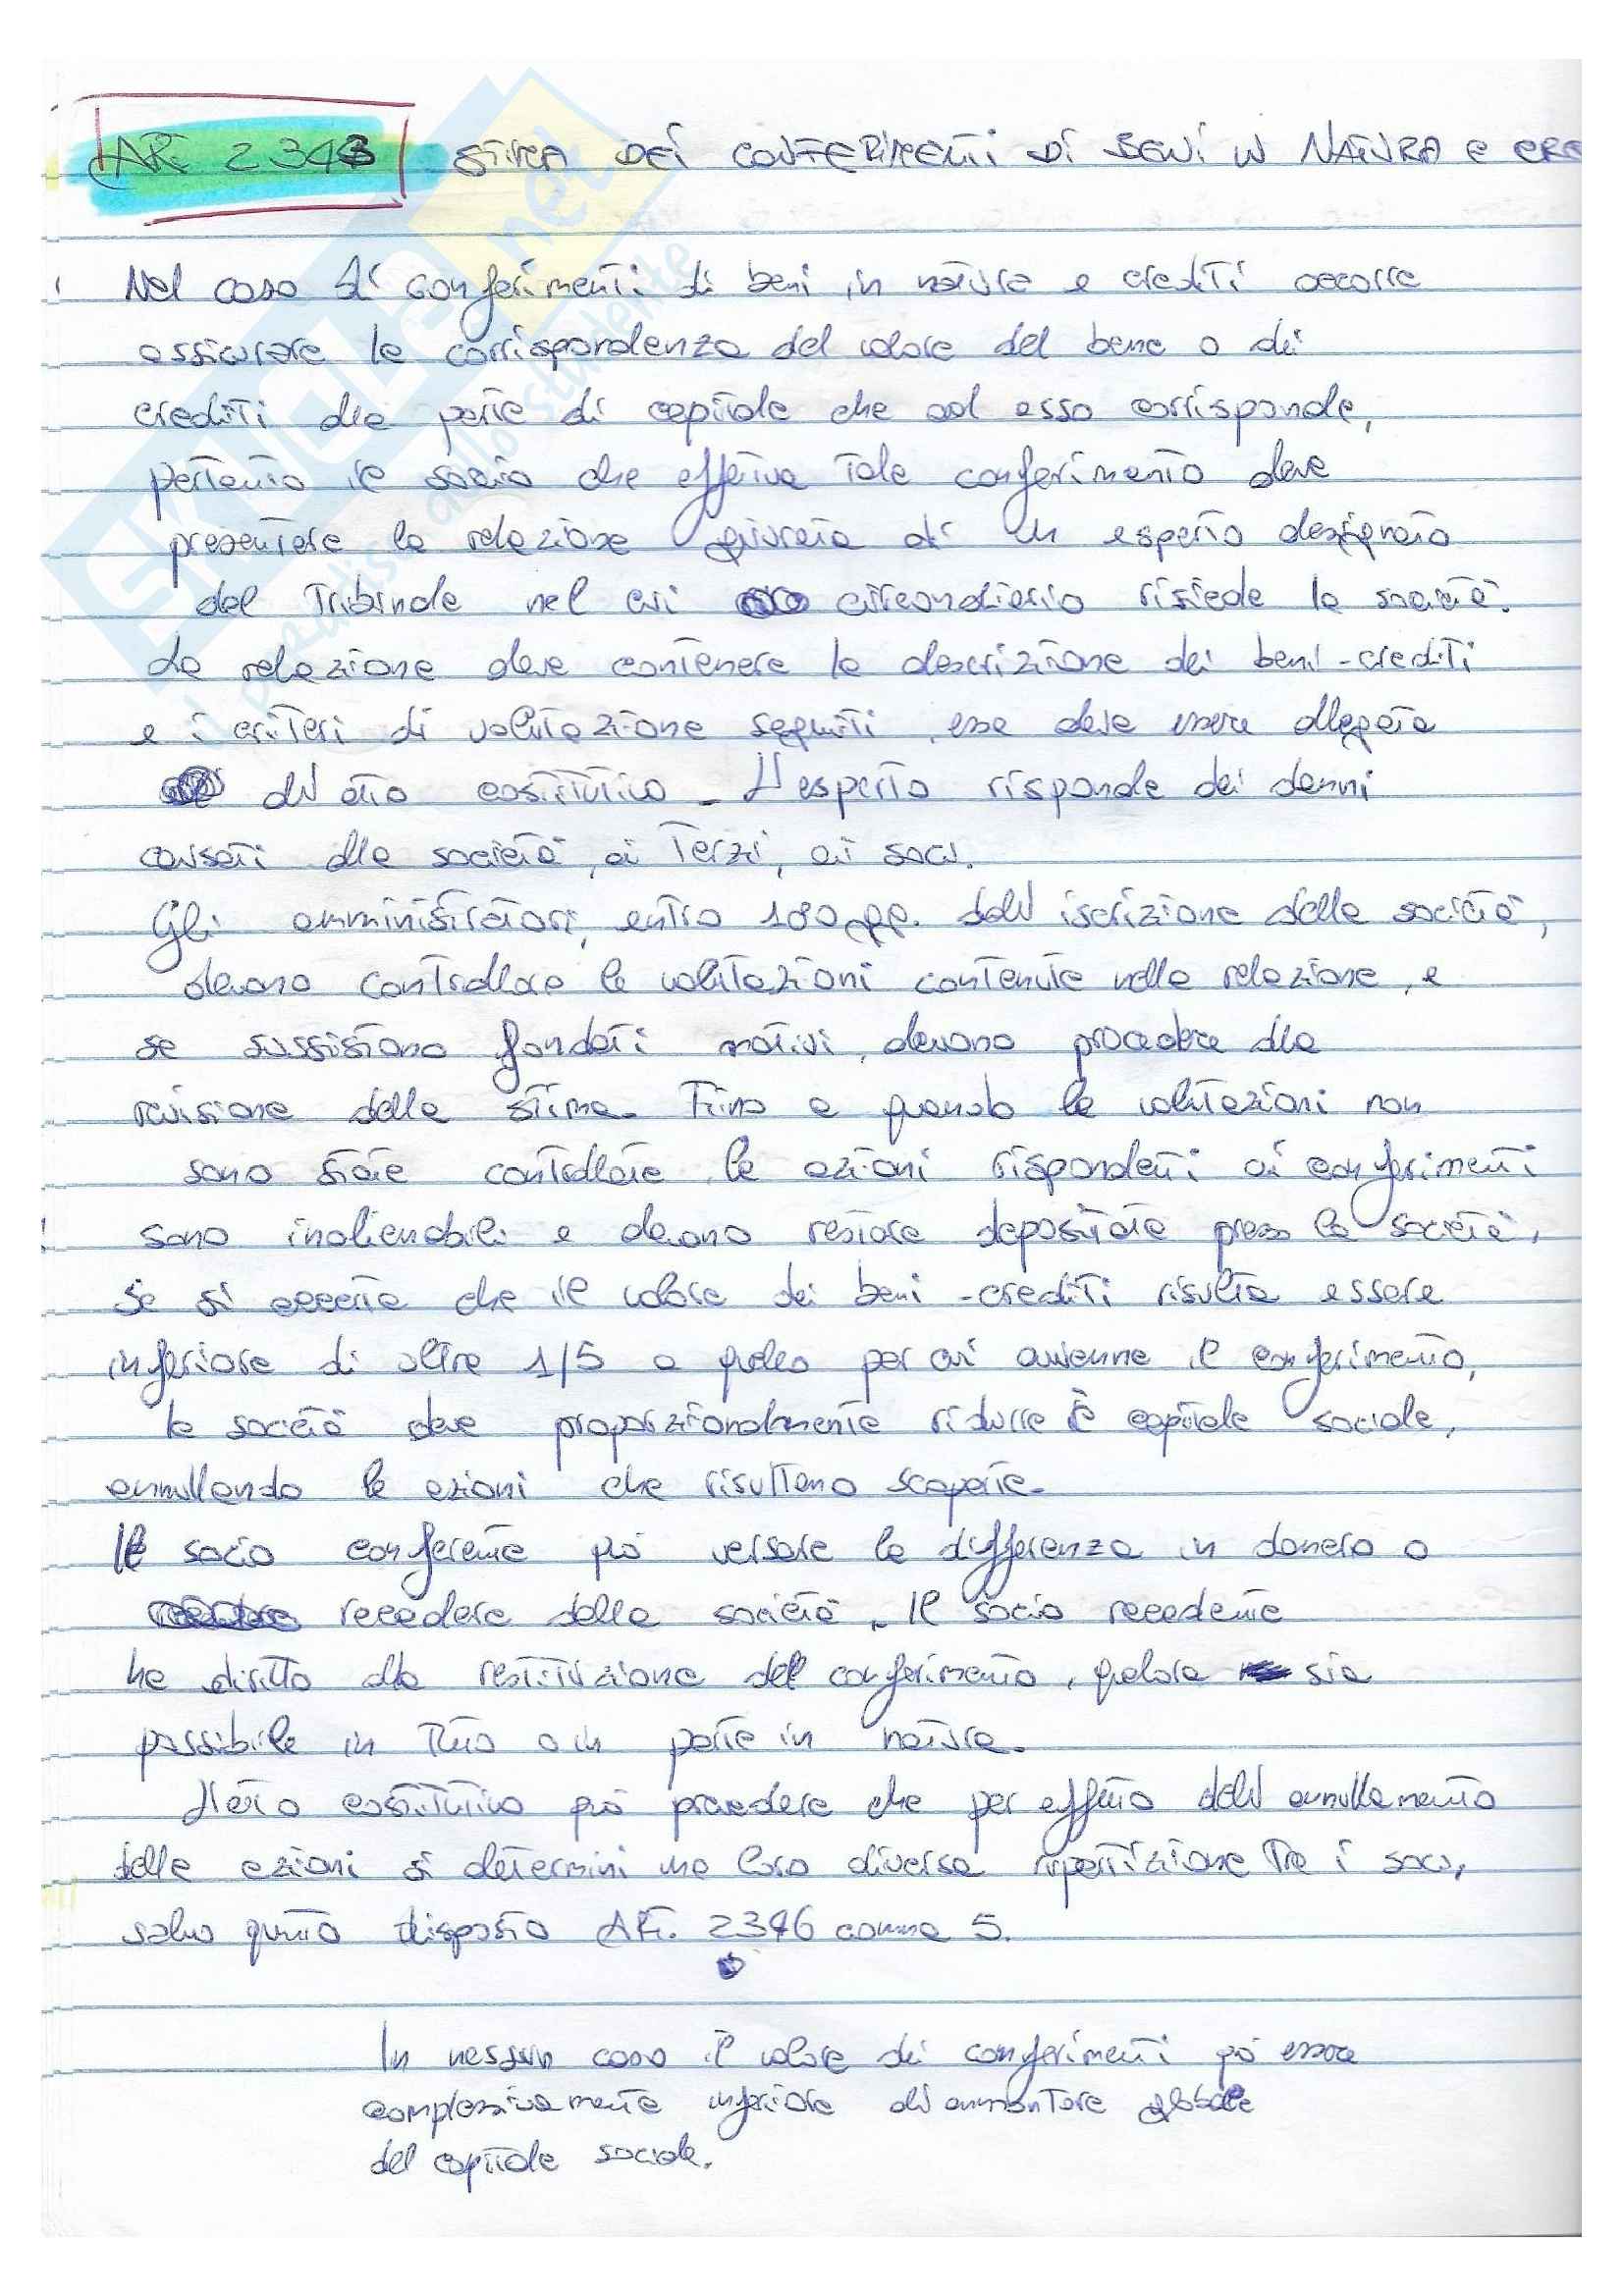 ART 2343 STIMA DEI CONFERIMENTI DI BENI IN NATURA E CRE
Nel caso di conferimenti di beni in natura e crediti occorre
assicurare la corrispondenza del valore del bene o dei
crediti alla parte di capitale che ad esso corrisponde,
pertanto il socio che effettua tale conferimento deve
presentare la relazione giurata di un esperto designato
dal Tribunale nel cui circondiario risiede la società.
La relazione deve contenere la descrizione dei beni-crediti
e i criteri di valutazione seguiti, essa deve essere allegata
all'atto costitutivo. L'esperto risponde dei danni
causati alla società, ai Terzi, ai soci.
Gli amministratori, entro 180 gg. dall'iscrizione della società,
devono controllare le valutazioni contenute nella relazione, e
se sussistono fondati motivi, devono procedere alla
revisione della stima. Fino a quando le valutazioni non
sono state controllate, le azioni rispondenti ai conferimenti
sono inalienabili e devono restare depositate presso la società,
Se si accerta che il valore dei beni-crediti risulta essere
inferiore di oltre 1/5 a quello per cui avvenne il conferimento,
la società deve proporzionalmente ridurre il capitale sociale,
annullando le azioni che risultano scoperte.
Il socio conferente può versare la differenza in denaro o
recedere dalla società. Il socio recedente
ha diritto alla restituzione del conferimento, qualora sia
possibile in tutto o in parte in natura.
L'atto costitutivo può prevedere che per effetto dell'annullamento
delle azioni si determini una loro diversa ripartizione tra i soci,
salvo quanto disposto Art. 2346 comma 5.
In nessun caso il valore dei conferimenti può essere
complessivamente inferiore all'ammontare globale
del capitale sociale.
SKUOLA.net
il paradiso dello studente